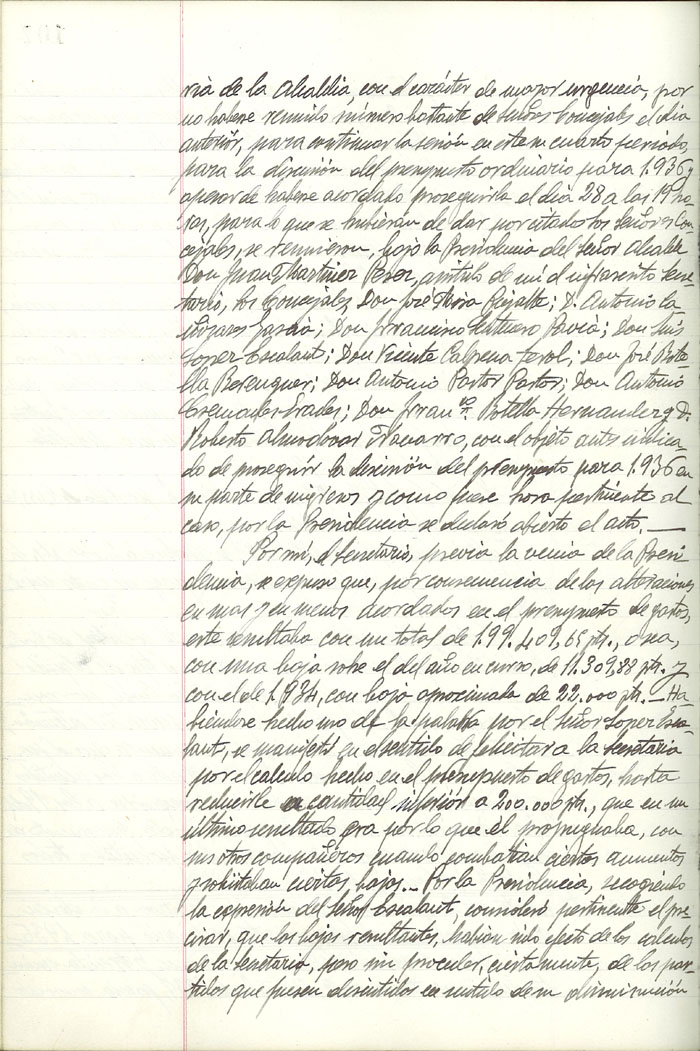 ria de la Alcaldia, con el carácter de mayor urgencia, por
no haberse reunido número bastante de Señores Concejales el dia
anterior, para continuar la sesión en este su cuarto periodo,
para la discusión del presupuesto ordinario para 1.936 y
apesar de haberse acordado proseguirla el dia 28 a las 19 ho-
ras, para lo que se hubieran de dar por citados los Señores Con-
cejales, se reunieron, bajo la Presidencia del Señor Alcalde
Don Juan Martinez Perez, asistido de mi el infrascrito Secre-
tario, los Concejales, Don José; D. Antonio Ca
ñizares Garcia; Don Pavia; Don Luis
Lopez Escalant; Don Vicente Cabrera Ferol; Don José Bote-
lla Berenguer; Don Antonio Pastor Pastor; Don Antonio
Cremades Erades; Don Franco. Potella Hernandez y D.
Roberto Almodovar Navarro, con el objeto antes indica-
do de proseguir la discusión del presupuesto para 1.936 en
su parte de ingresos y como fuese hora pertinente al
caso, por la Presidencia se declaró abierto el acto.—
Por mi, el Secretario, previa la venia de la Presi
dencia, se expuso que, por consecuencia de las alteraciones
en mas y en menos acordadas en el presupuesto de gastos,
este resultaba con un total de 199.409,65 pts., o sea,
con una baja sobre el del año en curso, de 11.309,88 pts. y
con el de 1.934, con baja aproximada de 22.000 pts.— Ha
biendose hecho uso de la palabra por el Señor Lopez Esca-
lant, se manifestó en el sentido de felicitar a la Secretaria
por el calculo hecho en el presupuesto de gastos, hasta
reducirle a cantidad inferior a 200.000 pts., que en un
último resultado era por lo que él propugnaba, con
sus otros compañeros cuando combatian ciertos aumentos
y solicitaban ciertas bajas.— Por la Presidencia, recogiendo
la expresión del Señor Escalant, consideró pertinente el pre
cisar, que las bajas resultantes, habian sido efecto de los calculos
de la Secretaria, pero sin proceder, ciertamente, de las par-
tidas que fuesen discutidas en sentido de su disminución